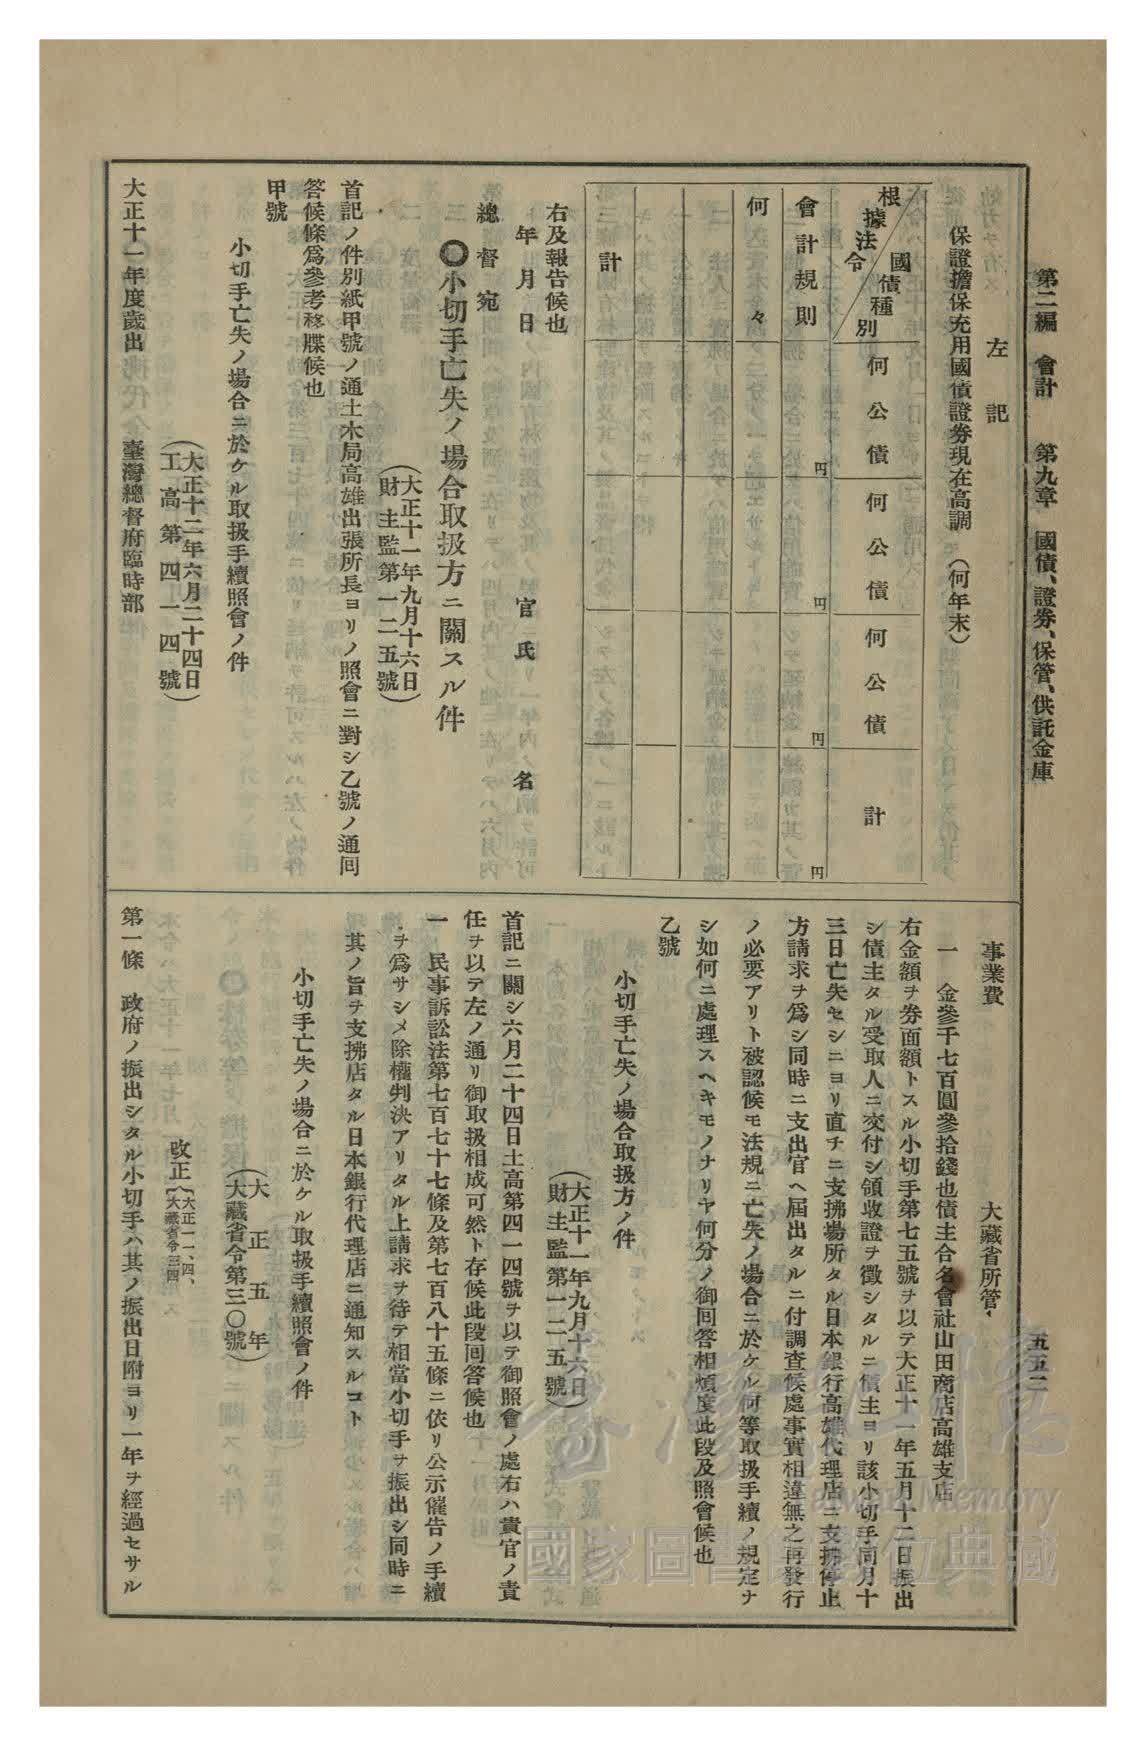 第二編　會計　　第九章　國債、證券、保管、供託金庫
五五二
左記
保證擔保充用國債證券現在高調　（何年末）
國債種別
根據法令
何公債
何公債
何公債
計
會計規則
円
円
円
円
何々
計
右及報告候也
年　月　日
官　氏　名
總督宛
◎小切手亡失ノ場合取扱方ニ關スル件
（大正十一年九月十六日
財主監第一二五號）
首記ノ件別紙甲號ノ通土木局高雄出張所長ヨリノ照會ニ對シ乙號ノ通囘
答候條爲參考移牒候也
甲號
小切手亡失ノ場合ニ於ケル取扱手續照會ノ件
（大正十二年六月二十四日
工高第四一四號）
大正十一年度歲出　　　臺灣總督府臨時部
事業費　　　　　　　　大藏省所管、
一　金參千七百圓參拾錢也債主合名會社山田商店高雄支店
右金額ヲ券面額トスル小切手第七五號ヲ以テ大正十一年五月十二日振出
シ債主タル受取人ニ交付シ領收證ヲ徵シタルニ債主ヨリ該小切手同月十
三日亡失セシニヨリ直チニ支拂場所タル日本銀行高雄代理店ニ支拂停止
方請求ヲ爲シ同時ニ支出官ヘ屆出タルニ付調查候處事實相違無之再發行
ノ必要アリト被認候モ法規ニ亡失ノ場合ニ於ケル何等取扱手續ノ規定ナ
シ如何ニ處理スヘキモノナリヤ何分ノ御囘答相煩度此段及照會候也
乙號
小切手亡失ノ場合取扱方ノ件
（大正十一年九月十六日
財主監第一二五號）
首記ニ關シ六月二十四日土高第四一四號ヲ以テ御照會ノ處右ハ貴官ノ責
任ヲ以テ左ノ通リ御取扱相成可然ト存候此段囘答候也
一　民事訴訟法第七百七十七條及第七百八十五條ニ依リ公示催告ノ手續
ヲ爲サシメ除權判決アリタル上請求ヲ待テ相當小切手ヲ振出シ同時ニ
其ノ旨ヲ支拂店タル日本銀行代理店ニ通知スルコト
小切手亡失ノ場合ニ於ケル取扱手續照會ノ件
（大正五年
大藏省令第三〇號）
改正〔大正一一、四、
大藏省令三四
第一條　政府ノ振出シタル小切手ハ其ノ振出日附ヨリ一年ヲ經過セサル
臺灣記憶
Taiwan Memory
國家圖書館數位典藏